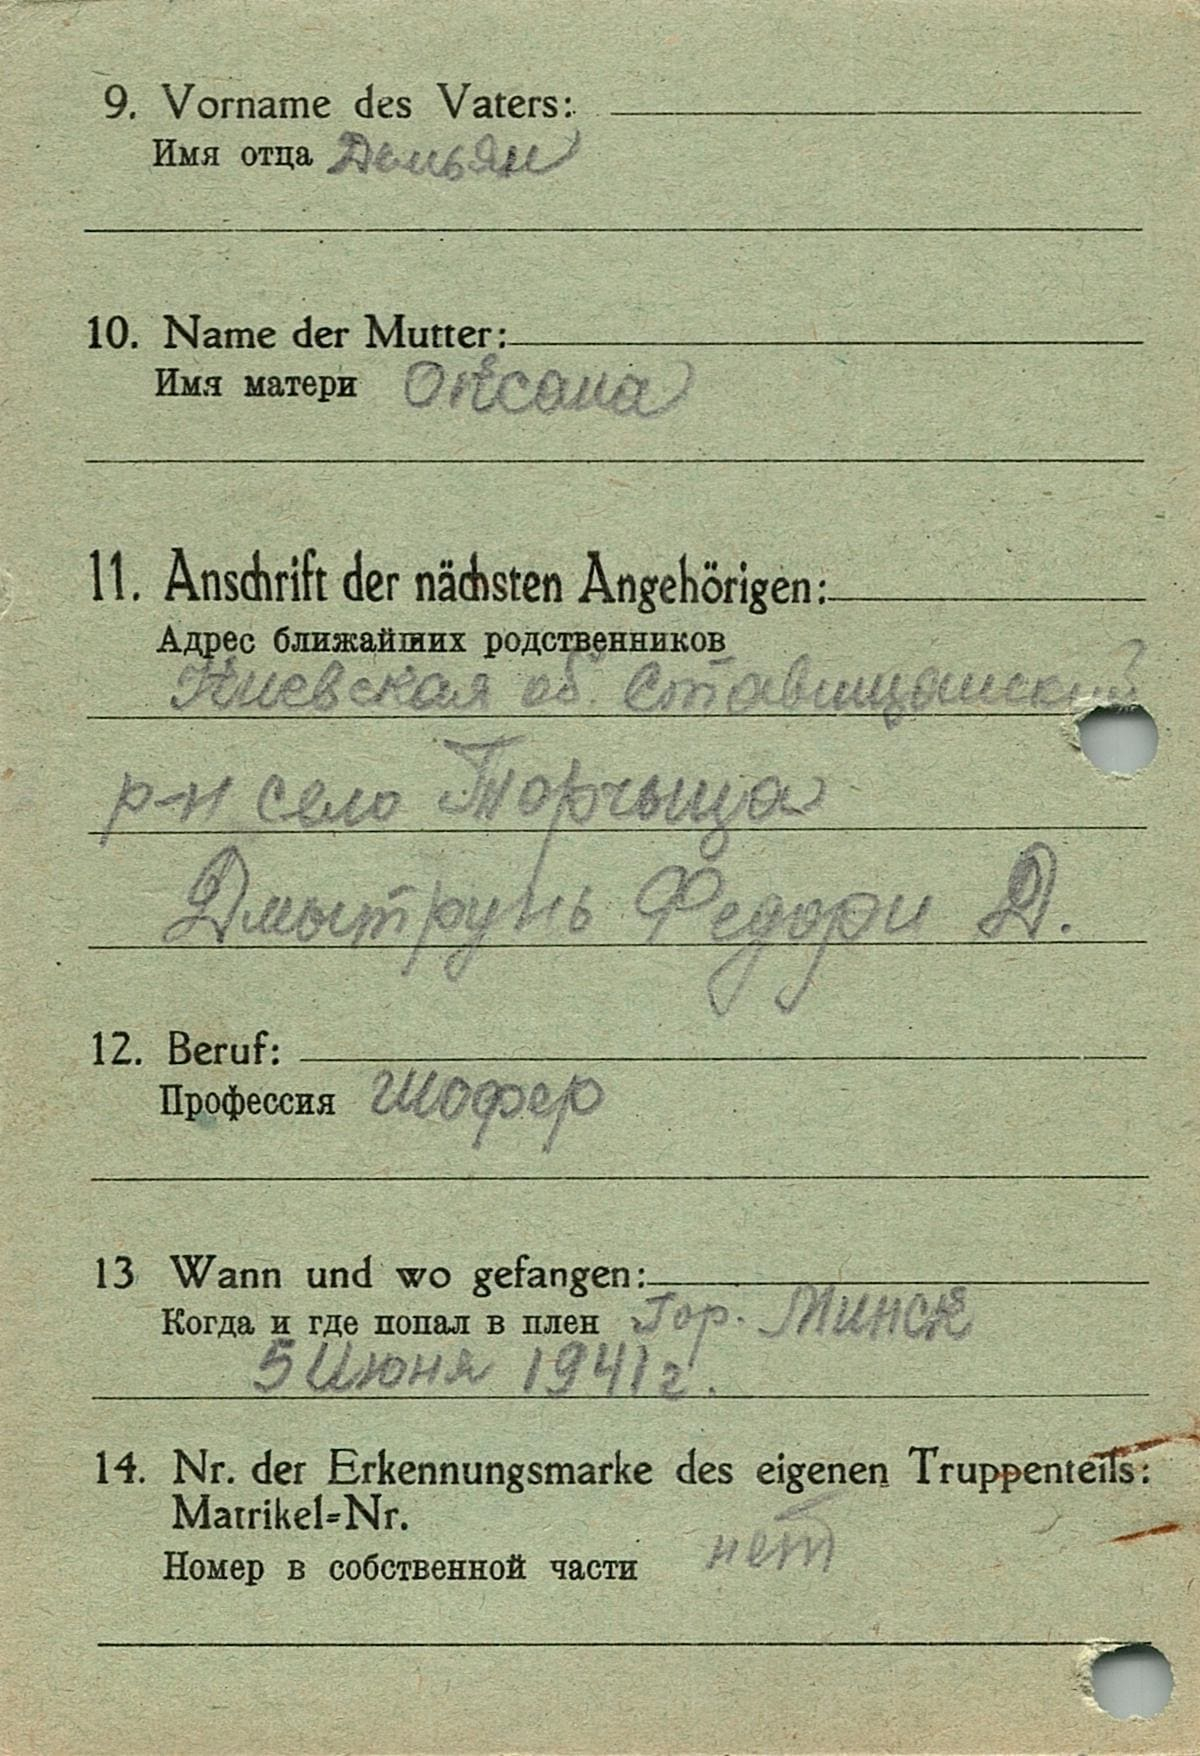 9. Vorname des Vaters:
Имя отца Демьян
10. Name der Mutter:
Имя матери Оксана
11. Anschrift der nächsten Angehörigen:
Адрес ближайших родственников
Киевская об. Ставищанский
р-н село Торчыца
Дмытрунь Федори Д.
12. Beruf:
Профессия шофер
13 Wann und wo gefangen:
Когда и где попал в плен Гор. Минск
5 Июня 1941 г.
14. Nr. der Erkennungsmarke des eigenen Truppenteils:
Matrikel=Nr.
Номер в собственной части нет